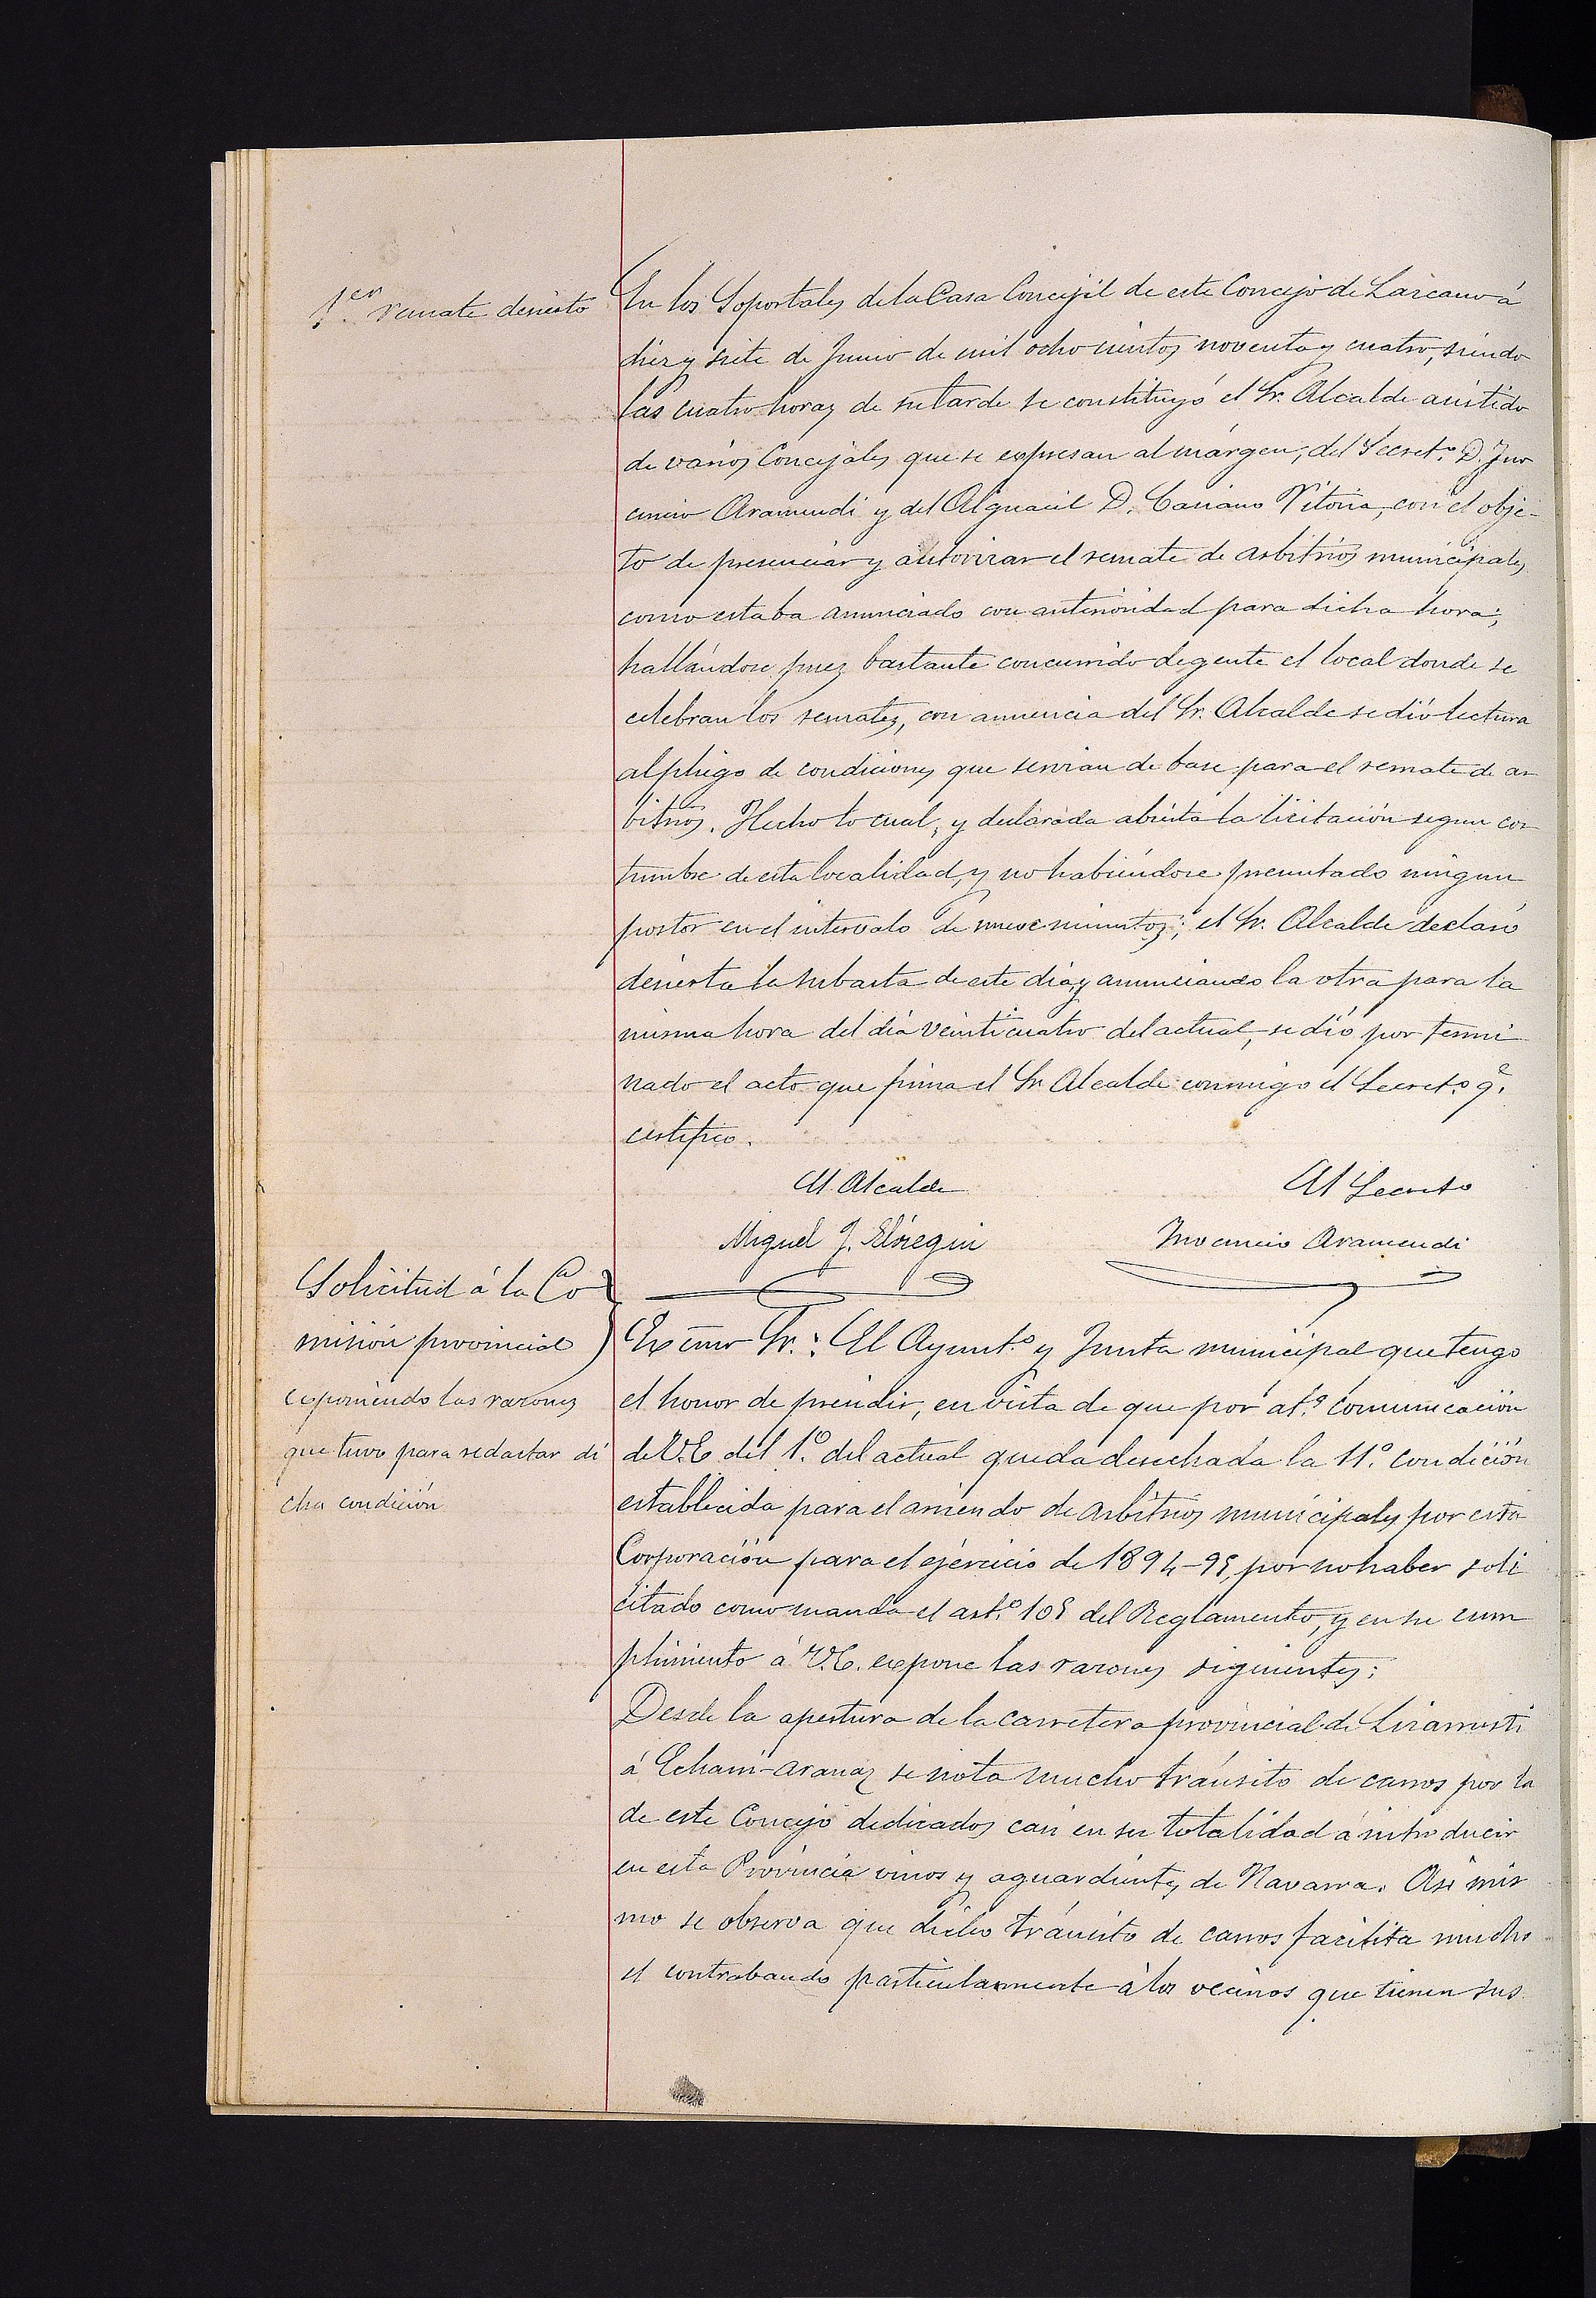 1.er remate desierto
En los Soportales de la Casa Concejil de este Concejo de Lazcano á
diez y siete de Junio de mil ocho cientos noventa y cuatro, siendo
las cuatro horas de su tarde se constituyó el Sr. Alcalde asistido
de varios Concejales que se expresan al márgen, del Secret.º D. Ino
cencio Aramendi y del Alguacil D. Casiano Vitoria, con el obje-
to de presenciar y autorizar el remate de arbitrios municipales
como estaba anunciado con anterioridad para dicha hora;
hallándose pues bastante concurrido de gente el local donde se
celebran los remates, con anuencia del Sr. Alcalde se dió lectura
al pliego de condiciones que servian de base para el remate de ar
bitrios. Hecho lo cual, y declarada abierta la licitación segun cos
tumbre de esta localidad, y no habiéndose presentado ningun
postor en el intervalo de nueve minutos; el Sr. Alcalde declaró
desierta la subasta de este dia, y anunciando la otra para la
misma hora del dia veinticuatro del actual, se dió por termi
nado el acto que firma el Sr. Alcalde conmigo el Secret.º q.e
certifico.
El Alcalde El Secreto
Miguel J. Elósegui Inocencio Aramendi
Solicitud á la Co
misión provincial
exponiendo las razones
que tuvo para redactar di
cha condición
Excmo Sr.: El Ayunt.º y Junta municipal que tengo
el honor de presidir, en vista de que por at.ª comunicación
de V.E. del 1.º del actual queda desechada la 11.º condición
establecida para el arriendo de arbitrios municipales por esta
Corporación para el ejercicio de 1894-95, por no haber soli
citado como manda el art.º 105 del Reglamento, y en su cum
plimiento á V.E. expone las razones siguientes:
Desde la apertura de la carretera provincial de Lizarrusti
á Echarri-aranaz se nota mucho tránsito de carros por la
de este Concejo dedicados casi en su totalidad á introducir
en esta Provincia vinos y aguardientes de Navarra. Asi mis
mo se observa que dicho tránsito de carros facilita mucho
el contrabando particularmente á los vecinos que tienen sus